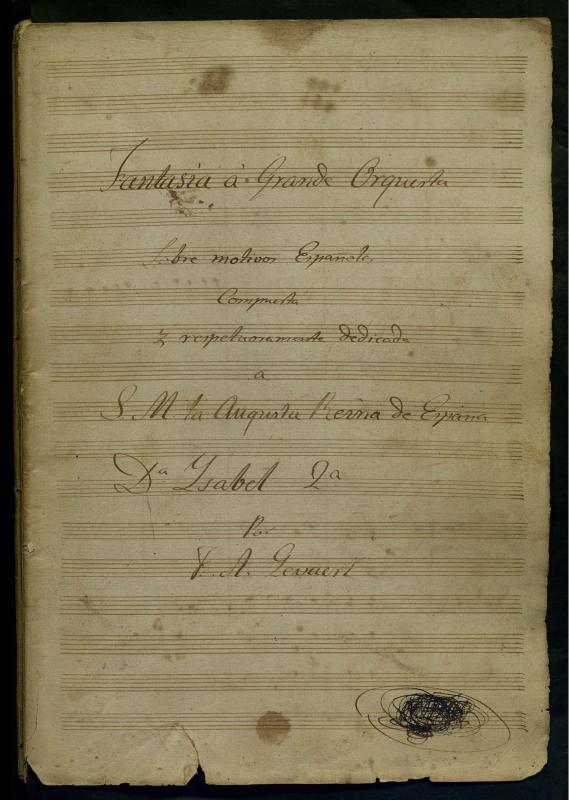 Fantasia à Grande Orquesta
Sobre motivos Españoles
Compuesta
y respetuosamente dedicada
a
S. M la Augusta Reina de España
Dª Ysabel 2ª
Por
F. A. Gevaert